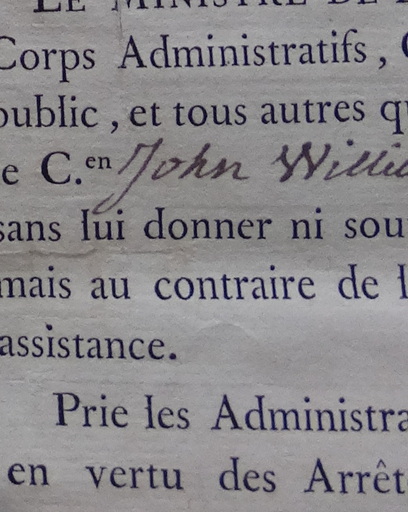 LE MINISTRE DE
Corps Administratifs,
public, et tous autres
C.en John
sans lui donner ni
mais au contraire de
assistance.
Prie les
en vertu des